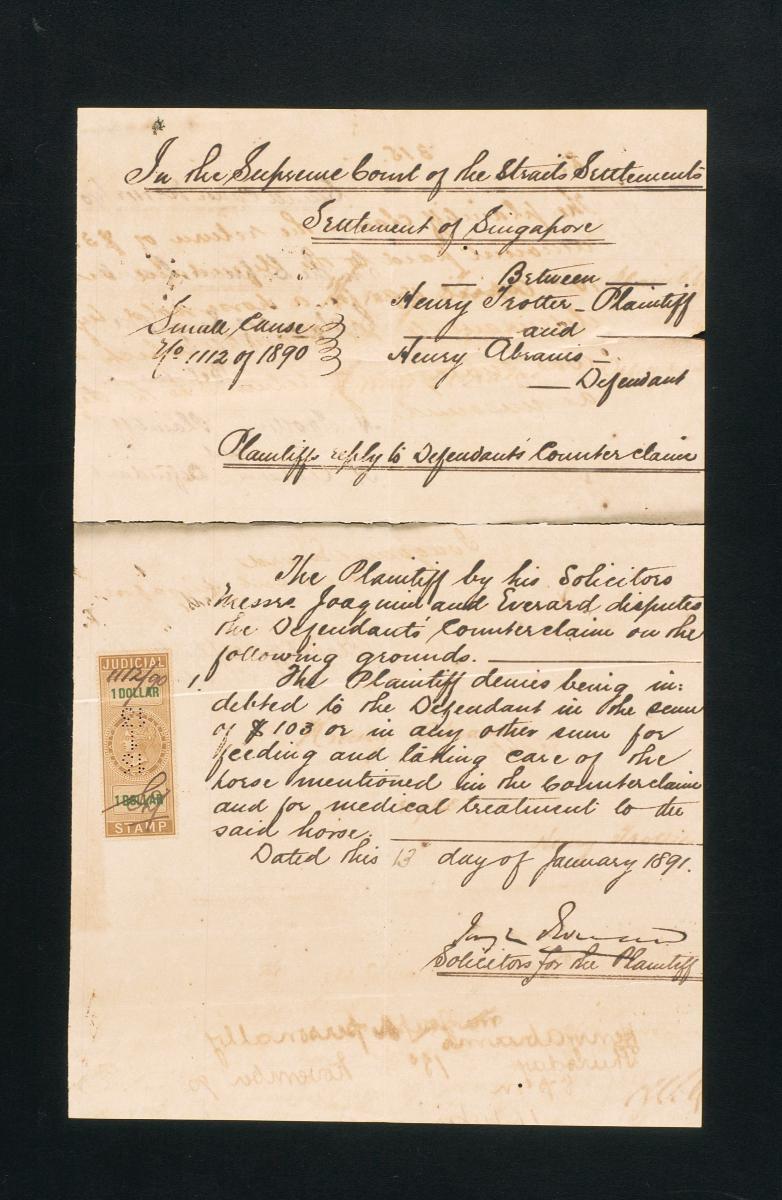 In the Supreme Court of the Straits Settlements
Settlement of Singapore
Between
Henry Trotter - Plaintiff
and
Small Cause
No. 1112 of 1890
Henry Abrams -
Defendant
Plaintiffs reply to Defendant's Counterclaim
The Plaintiff by his Solicitors
Messrs. Joaquim and Everard disputes
the Defendant's Counterclaim on the
following grounds.
1. The Plaintiff denies being in:
debted to the Defendant in the sum
of $103 or in any other sum for
feeding and taking care of the
horse mentioned in the Counterclaim
and for medical treatment to the
said horse.
Dated this 13 day of January 1891.
Solicitors for the Plaintiff
JUDICIAL
1112/90
1 DOLLAR
1 DOLLAR
STAMP